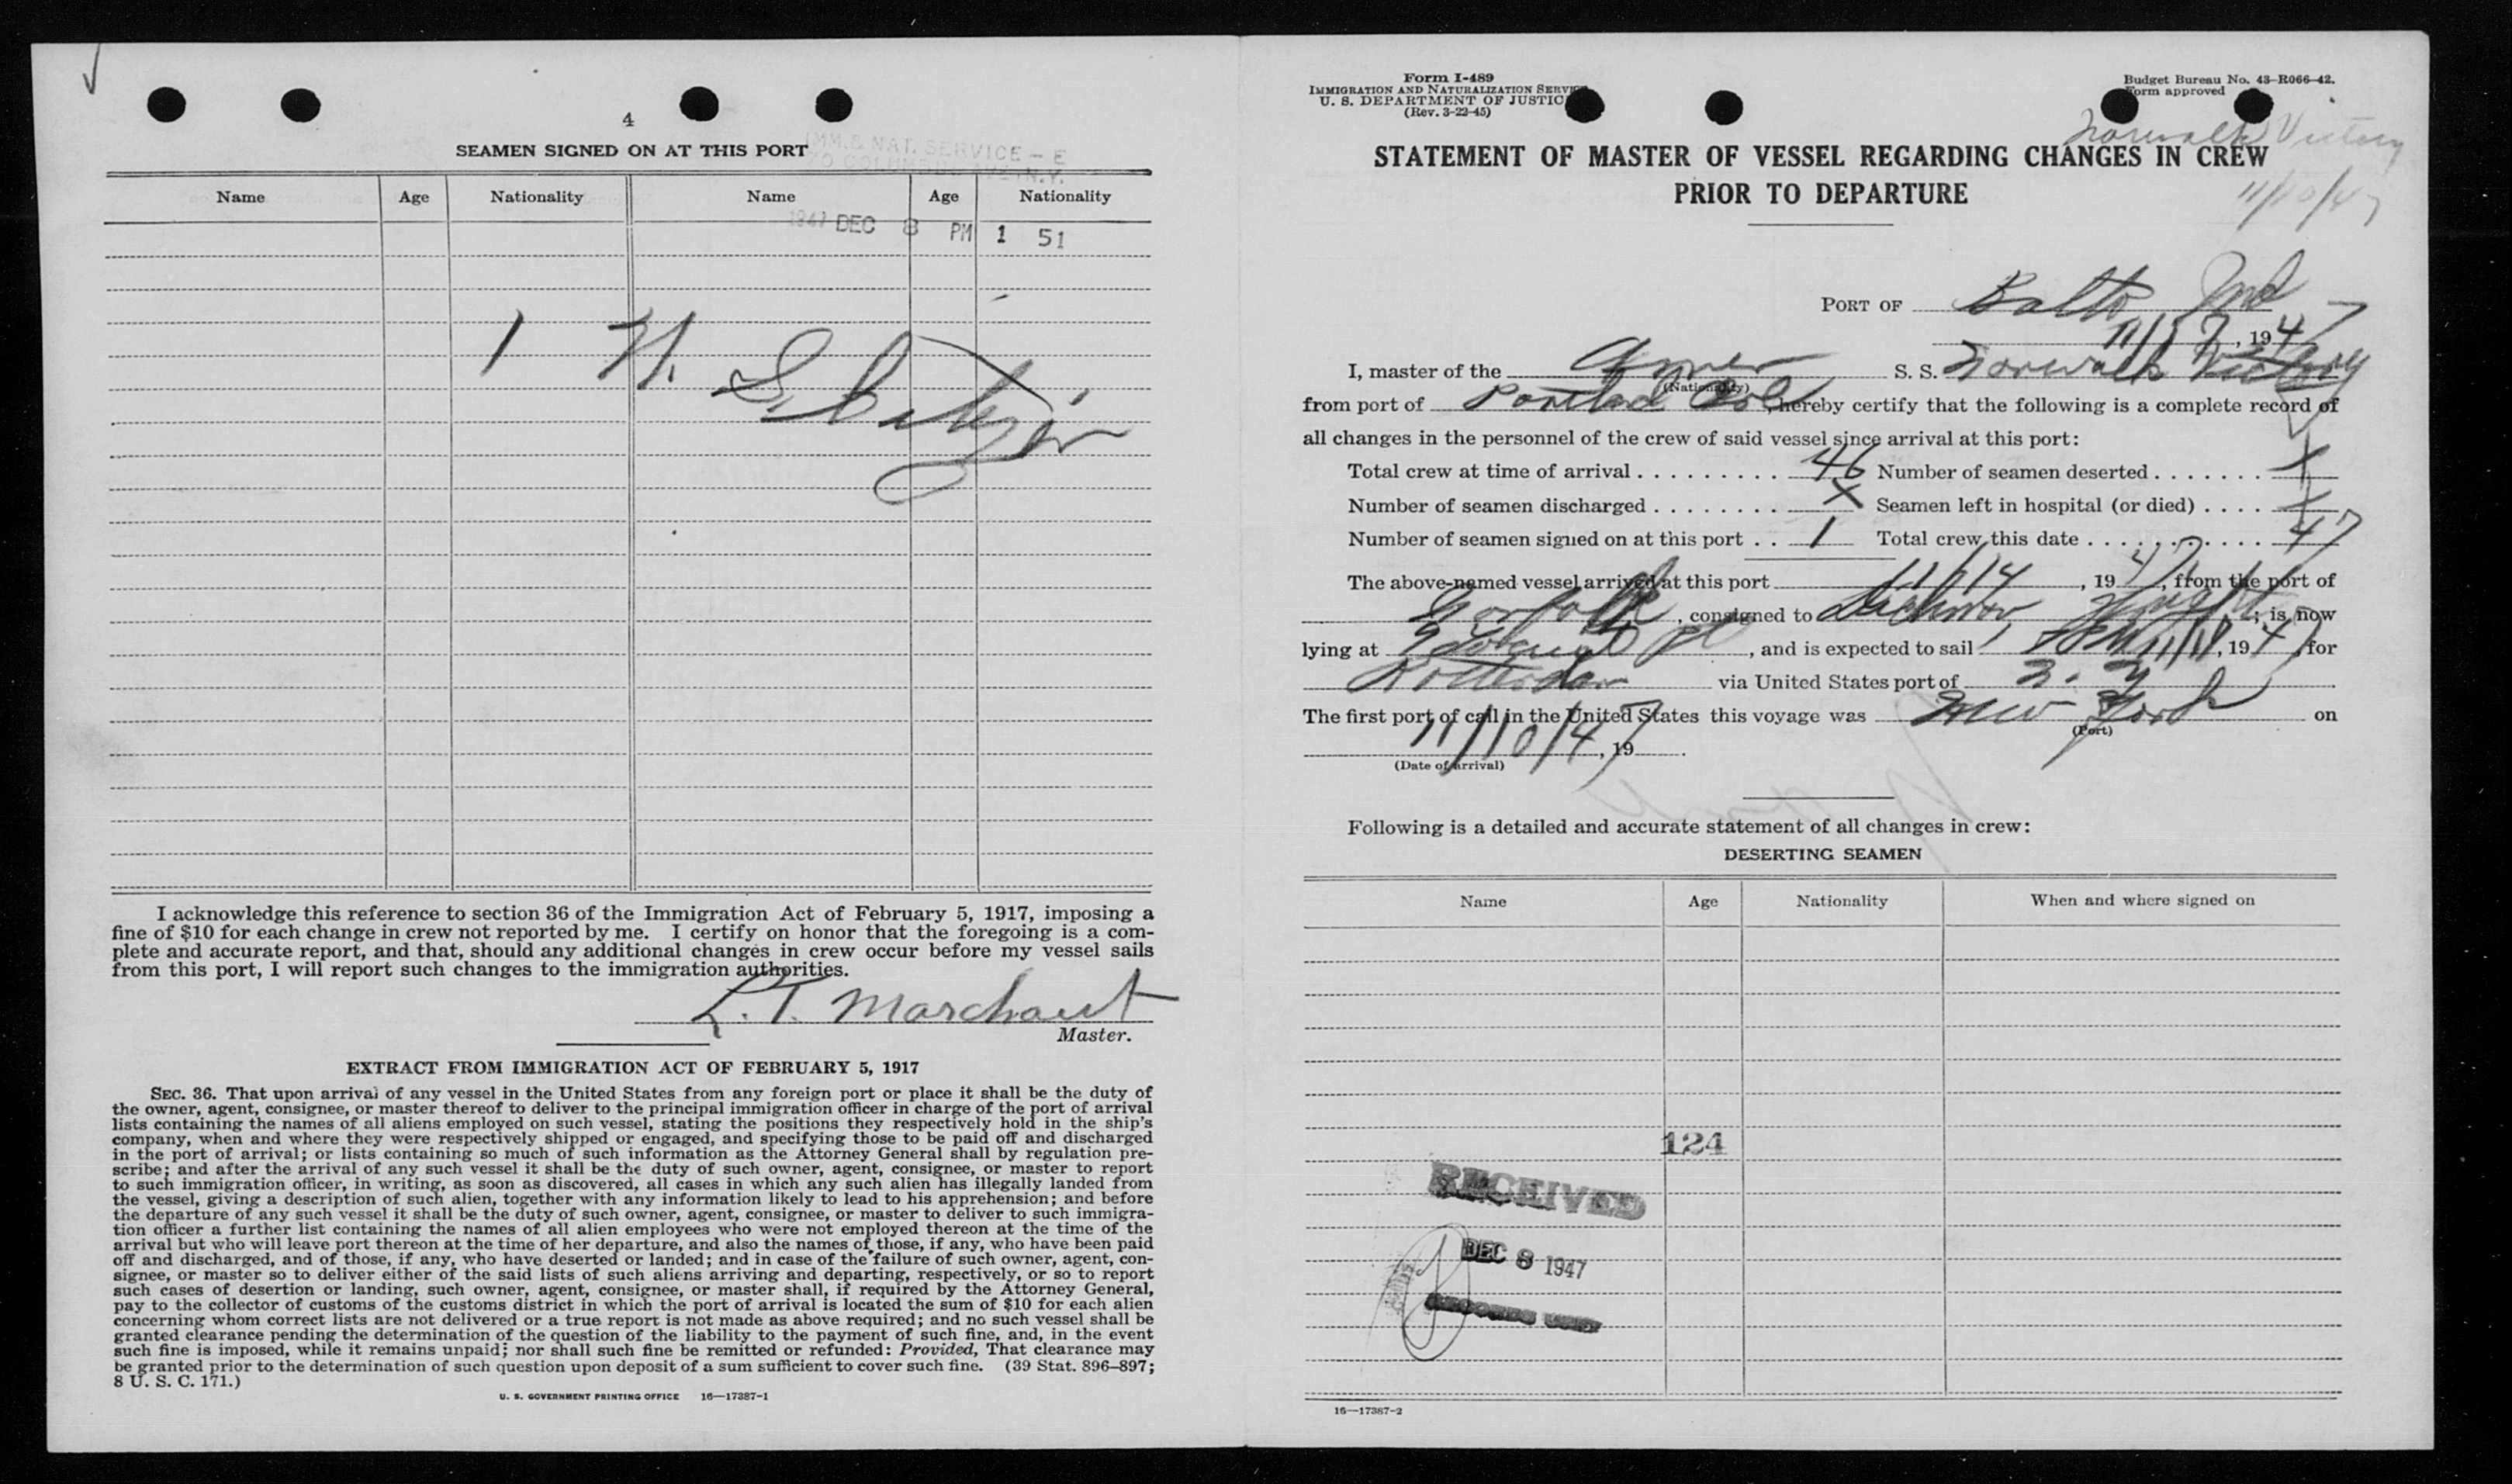 4
SEAMEN SIGNED ON AT THIS PORT
IMM. & NAT. SERVICE – E
70 COLUMBUS AVE. N.Y.
Name Age Nationality Name Age Nationality
1947 DEC 8 PM 1 51
1 U. S. Citizen
I acknowledge this reference to section 36 of the Immigration Act of February 5, 1917, imposing a
fine of $10 for each change in crew not reported by me. I certify on honor that the foregoing is a com-
plete and accurate report, and that, should any additional changes in crew occur before my vessel sails
from this port, I will report such changes to the immigration authorities.
L. T. Marchant
Master.
EXTRACT FROM IMMIGRATION ACT OF FEBRUARY 5, 1917
SEC. 36. That upon arrival of any vessel in the United States from any foreign port or place it shall be the duty of
the owner, agent, consignee, or master thereof to deliver to the principal immigration officer in charge of the port of arrival
lists containing the names of all aliens employed on such vessel, stating the positions they respectively hold in the ship's
company, when and where they were respectively shipped or engaged, and specifying those to be paid off and discharged
in the port of arrival; or lists containing so much of such information as the Attorney General shall by regulation pre-
scribe; and after the arrival of any such vessel it shall be the duty of such owner, agent, consignee, or master to report
to such immigration officer, in writing, as soon as discovered, all cases in which any such alien has illegally landed from
the vessel, giving a description of such alien, together with any information likely to lead to his apprehension; and before
the departure of any such vessel it shall be the duty of such owner, agent, consignee, or master to deliver to such immigra-
tion officer a further list containing the names of all alien employees who were not employed thereon at the time of the
arrival but who will leave port thereon at the time of her departure, and also the names of those, if any, who have been paid
off and discharged, and of those, if any, who have deserted or landed; and in case of the failure of such owner, agent, con-
signee, or master so to deliver either of the said lists of such aliens arriving and departing, respectively, or so to report
such cases of desertion or landing, such owner, agent, consignee, or master shall, if required by the Attorney General,
pay to the collector of customs of the customs district in which the port of arrival is located the sum of $10 for each alien
concerning whom correct lists are not delivered or a true report is not made as above required; and no such vessel shall be
granted clearance pending the determination of the question of the liability to the payment of such fine, and, in the event
such fine is imposed, while it remains unpaid; nor shall such fine be remitted or refunded: Provided, That clearance may
be granted prior to the determination of such question upon deposit of a sum sufficient to cover such fine. (39 Stat. 896–897;
8 U. S. C. 171.)
U. S. GOVERNMENT PRINTING OFFICE 16—17387-1
Form I-489
IMMIGRATION AND NATURALIZATION SERVICE
U. S. DEPARTMENT OF JUSTICE
(Rev. 3-22-45)
Budget Bureau No. 43-R066-42.
Form approved
Norwalk Victory
11/10/47
STATEMENT OF MASTER OF VESSEL REGARDING CHANGES IN CREW
PRIOR TO DEPARTURE
PORT OF Balto Md
11/17, 1947
I, master of the Amer S. S. Norwalk Victory
(Nationality)
from port of Portland, hereby certify that the following is a complete record of
all changes in the personnel of the crew of said vessel since arrival at this port:
Total crew at time of arrival 46 Number of seamen deserted X
Number of seamen discharged X Seamen left in hospital (or died) X
Number of seamen signed on at this port 1 Total crew this date 47
The above-named vessel arrived at this port 11/14, 1947, from the port of
Norfolk, consigned to; is now
lying at, and is expected to sail 11/18, 1947, for
Rotterdam via United States port of N. Y
The first port of call in the United States this voyage was New York on
(Port)
11/10/47, 19
(Date of arrival)
Following is a detailed and accurate statement of all changes in crew:
DESERTING SEAMEN
Name Age Nationality When and where signed on
124
RECEIVED
DEC 8 1947
RECORDS UNIT
16—17387-2